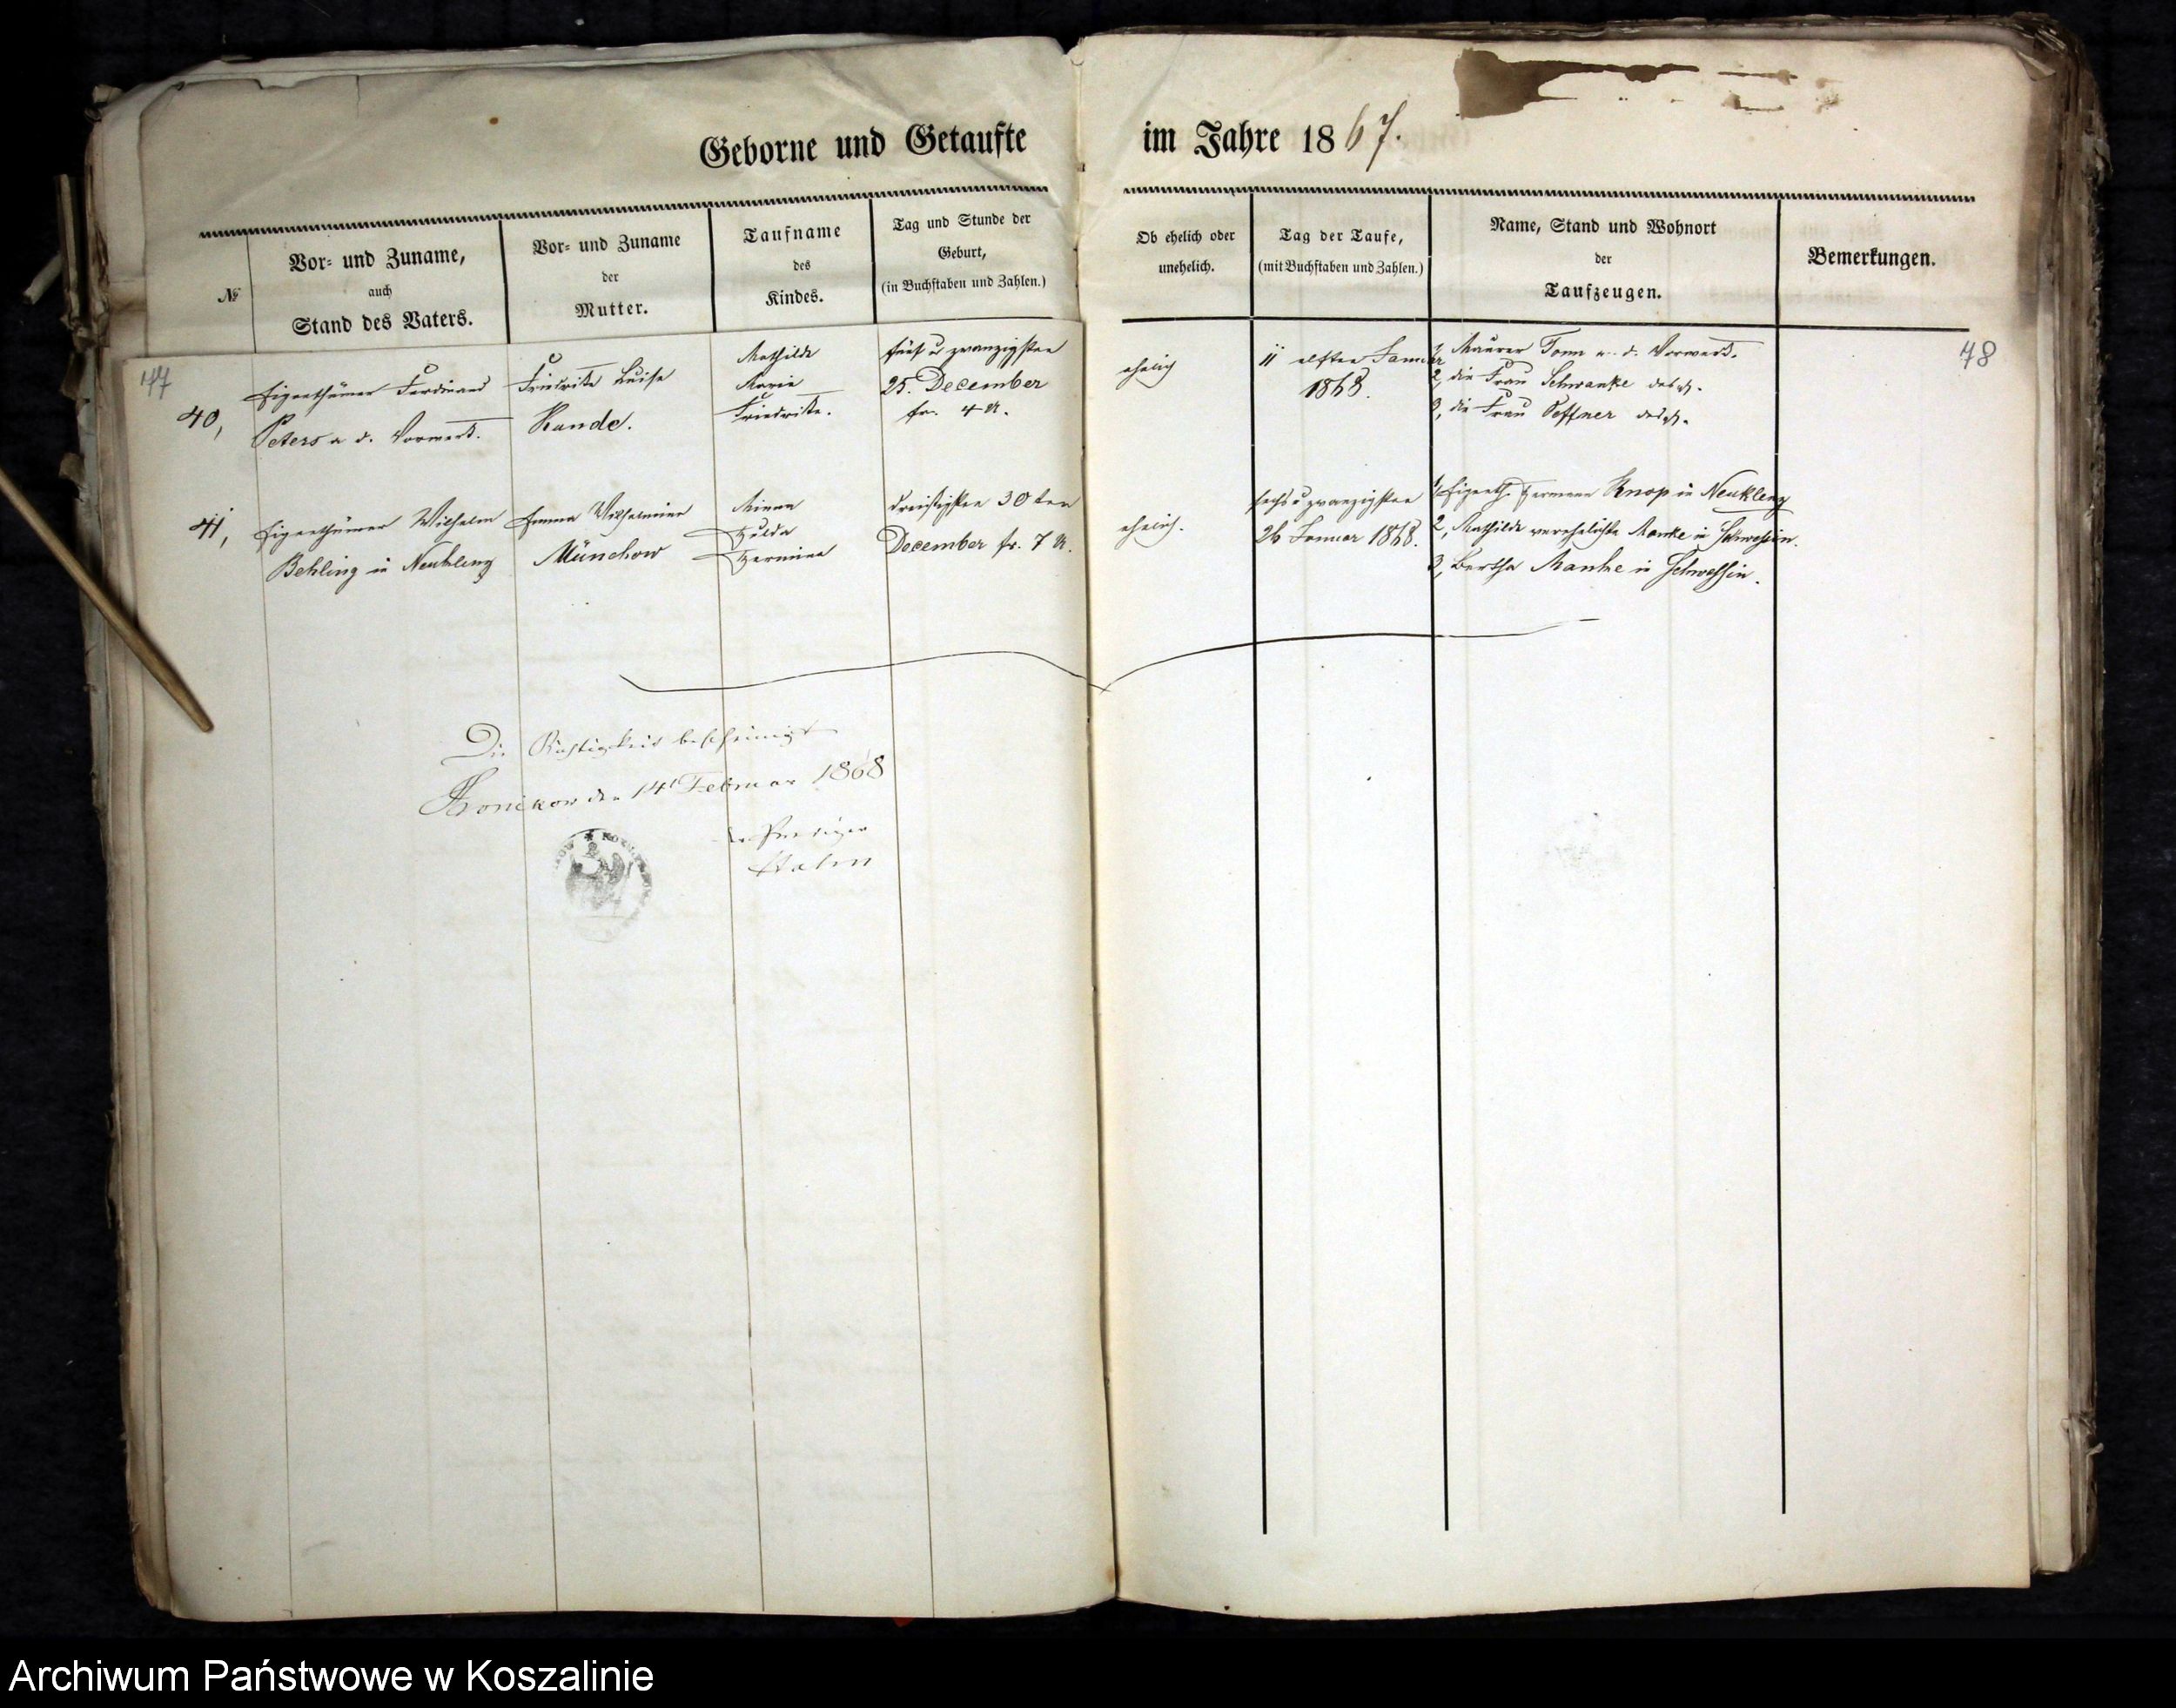 Geborne und Getaufte im Jahre 1867.
№
Vor- und Zuname,
auch
Stand des Vaters.
Vor- und Zuname
der
Mutter.
Taufname
des
Kindes.
Tag und Stunde der
Geburt,
(in Buchstaben und Zahlen.)
Ob ehelich oder
unehelich.
Tag der Taufe,
(mit Buchstaben und Zahlen.)
Name, Stand und Wohnort
der
Taufzeugen.
Bemerkungen.
77
78
40,
Eigenthümer Ferdinand
Peters a. d. Vorwerk.
Friedrike Luise
Rande.
Mathilde
Marie
Friedrike.
fünf u zwanzigsten
25. December
fr. 4 U.
ehelich
11 elften Januar
1868.
1, Maurer Tonn a. d. Vorwerk.
2, die Frau Schwanke das.
3, die Frau Peffner das.
41,
Eigenthümer Wilhelm
Behling in Neukleng
Emma Wilhelmine
Münchow
Minna
Hulda
Hermine
dreißigsten 30ten
December fr. 7 U.
ehelich.
sechs u zwanzigsten
26 Januar 1868.
1, Eigenth. Hermann Knop in Neukleng
2, Mathilde verehelichte Manke in Schwessin.
3, Bertha Manke in Schwessin.
Die Richtigkeit bescheinigt
Konikow den 14 Februar 1868
der Prediger
Hahn
Archiwum Państwowe w Koszalinie